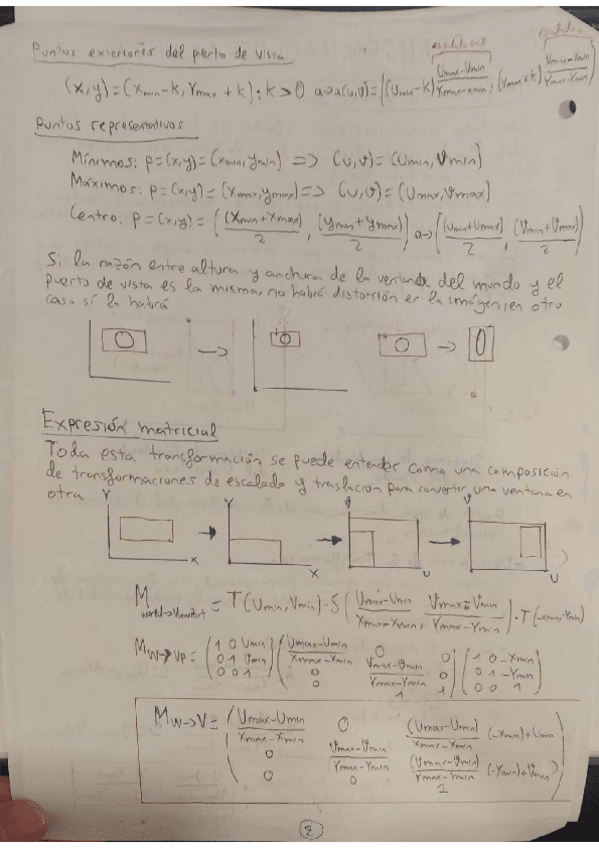 Puntos exteriores del puerto de vista
(x,y) = (Xmin-k, Ymax+k) : k>0 a→a(u,v) = ((Umin-k) (Umax-Umin)/(Xmax-Xmin), (Vmax+k) (Vmax-Vmin)/(Ymax-Ymin))
Puntos representativos
Mínimos: p=(x,y)=(xmin,ymin) => (u,v)=(Umin,Vmin)
Máximos: p=(x,y)=(Xmax,ymax) => (u,v)=(Umax,Vmax)
Centro: p=(x,y)= ((Xmin+Xmax)/2, (ymin+ymax)/2) a→ ((Umin+Umax)/2, (Vmin+Vmax)/2)
Si la razón entre altura y anchura de la ventana del mundo y el
puerto de vista es la misma, no habrá distorsión en la imágen, en otro
caso sí la habrá
Expresión matricial
Toda esta transformación se puede entender como una composición
de transformaciones de escalado y traslación para convertir una ventana en
otra
Y Y V V
X X U U
M world→viewport = T(Umin,Vmin)·S((Umax-Umin)/(Xmax-Xmin), (Vmax-Vmin)/(Ymax-Ymin))·T(-xmin,-Ymin)
MW→VP = (1 0 Umin (Umax-Umin)/(Xmax-Xmin) 0 0 1 0 -Xmin
0 1 Vmin 0 (Vmax-Vmin)/(Ymax-Ymin) 0 0 1 -Ymin
0 0 1) 0 1 0 0 1
MW→V = (Umax-Umin)/(Xmax-Xmin) 0 (Umax-Umin)/(Xmax-Xmin) (-Xmin)+Umin
0 (Vmax-Vmin)/(Ymax-Ymin) (Vmax-Vmin)/(Ymax-Ymin) (-Ymin)+Vmin
0 0 1
2